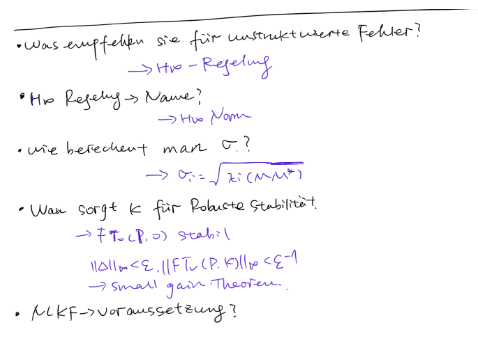 • Was empfehlen sie für unstrukturierte Fehler?
→ H∞ - Regelung
• H∞ Regelung → Name?
→ H∞ Norm
• wie berechent man σ?
→ σi = √λi(MM*)
• Wann sorgt K für Robuste Stabilität.
→ FTu(P,0) stabil
||Δ||∞<ε, ||FTu(P,K)||∞<ε⁻¹
→ small gain Theorem.
• NLKF → voraussetzung?